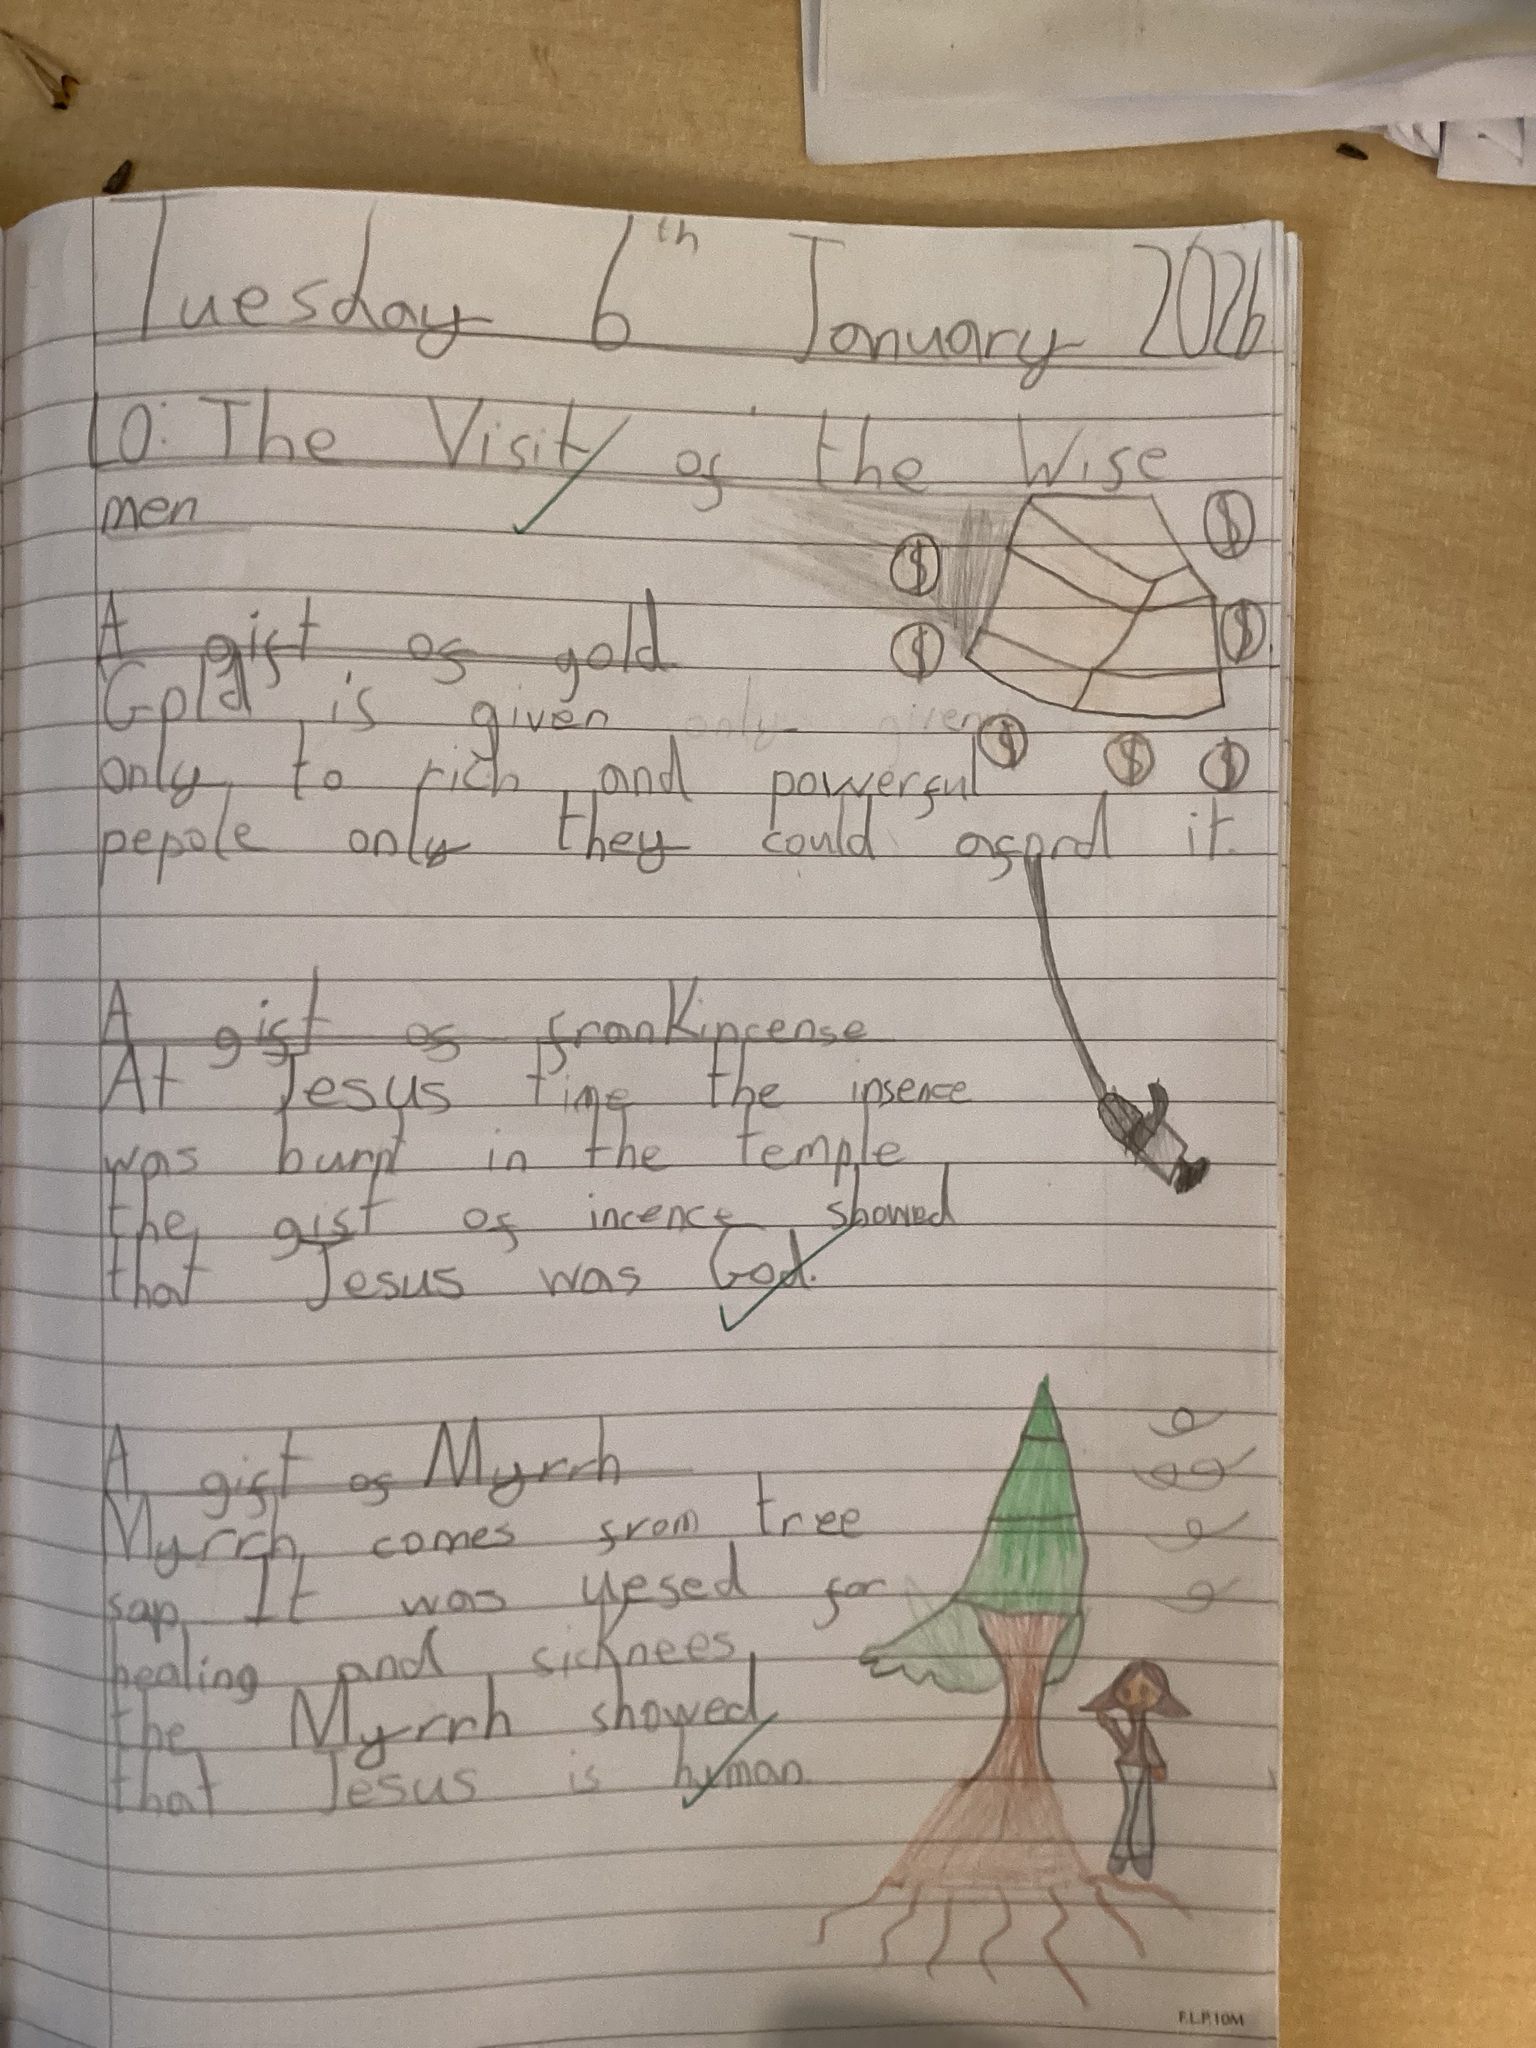 Tuesday 6th January 2026
LO: The Visit of the Wise
men
$
$
A gift of gold
$
$
Gold is given only given
$
$
$
only to rich and powerful
pepole only they could aford it.
A gift of frankincense
At Jesus time the insence
was burnt in the temple
the gift of incence showed
that Jesus was God.
A gift of Myrrh
Myrrh comes from tree
sap It was yesed for
healing and sicknees
the Myrrh showed
that Jesus is human.
F.L.P.10M